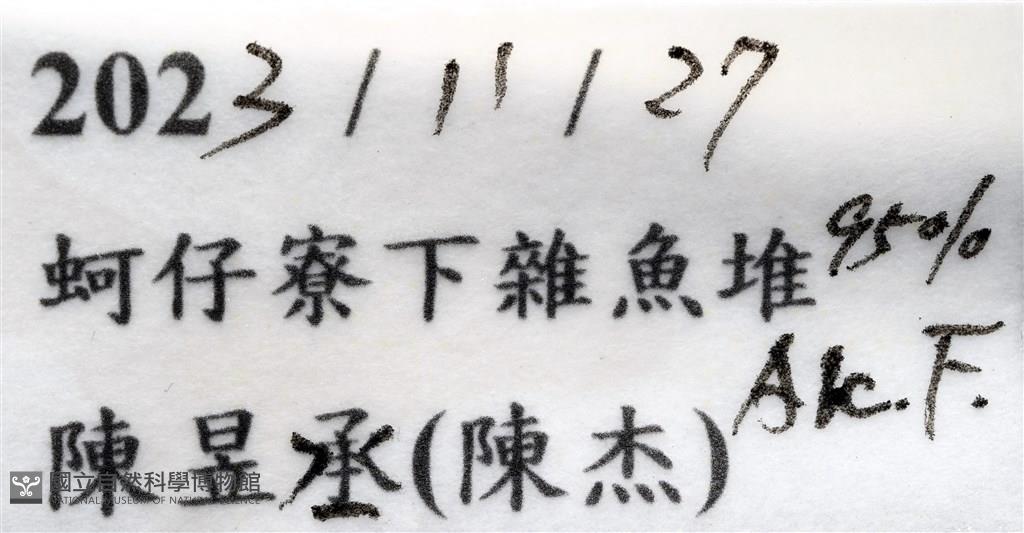 2023/11/27
蚵仔寮下雜魚堆 95%
Alc. F.
陳昱承(陳杰)
國立自然科學博物館
NATIONAL MUSEUM OF NATURAL SCIENCE